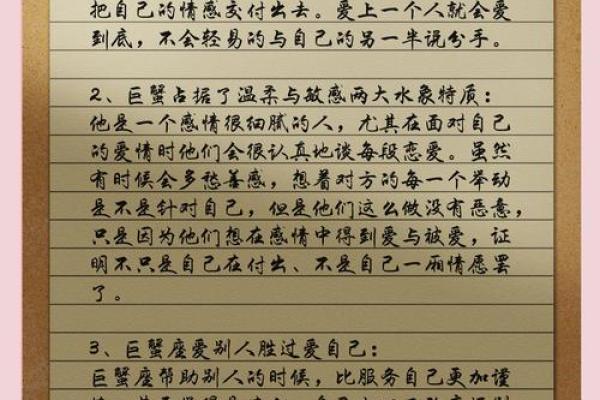 把自己的情感交付出去。爱上一个人就会爱
到底，不会轻易的与自己的另一半说分手。
2、巨蟹占据了温柔与敏感两大水象特质：
他是一个感情很细腻的人，尤其在面对自己
的爱情时他们会很认真地谈每段恋爱。虽然
有时候会多愁善感，想着对方的每一个举动
是不是针对自己，但是他们这么做没有恶意，
只是因为他们想在感情中得到爱与被爱，证
明不只是自己在付出、不是自己一厢情愿罢
了。
3、巨蟹座爱别人胜过爱自己：
巨蟹座帮助别人的时候，比服务自己更加谨